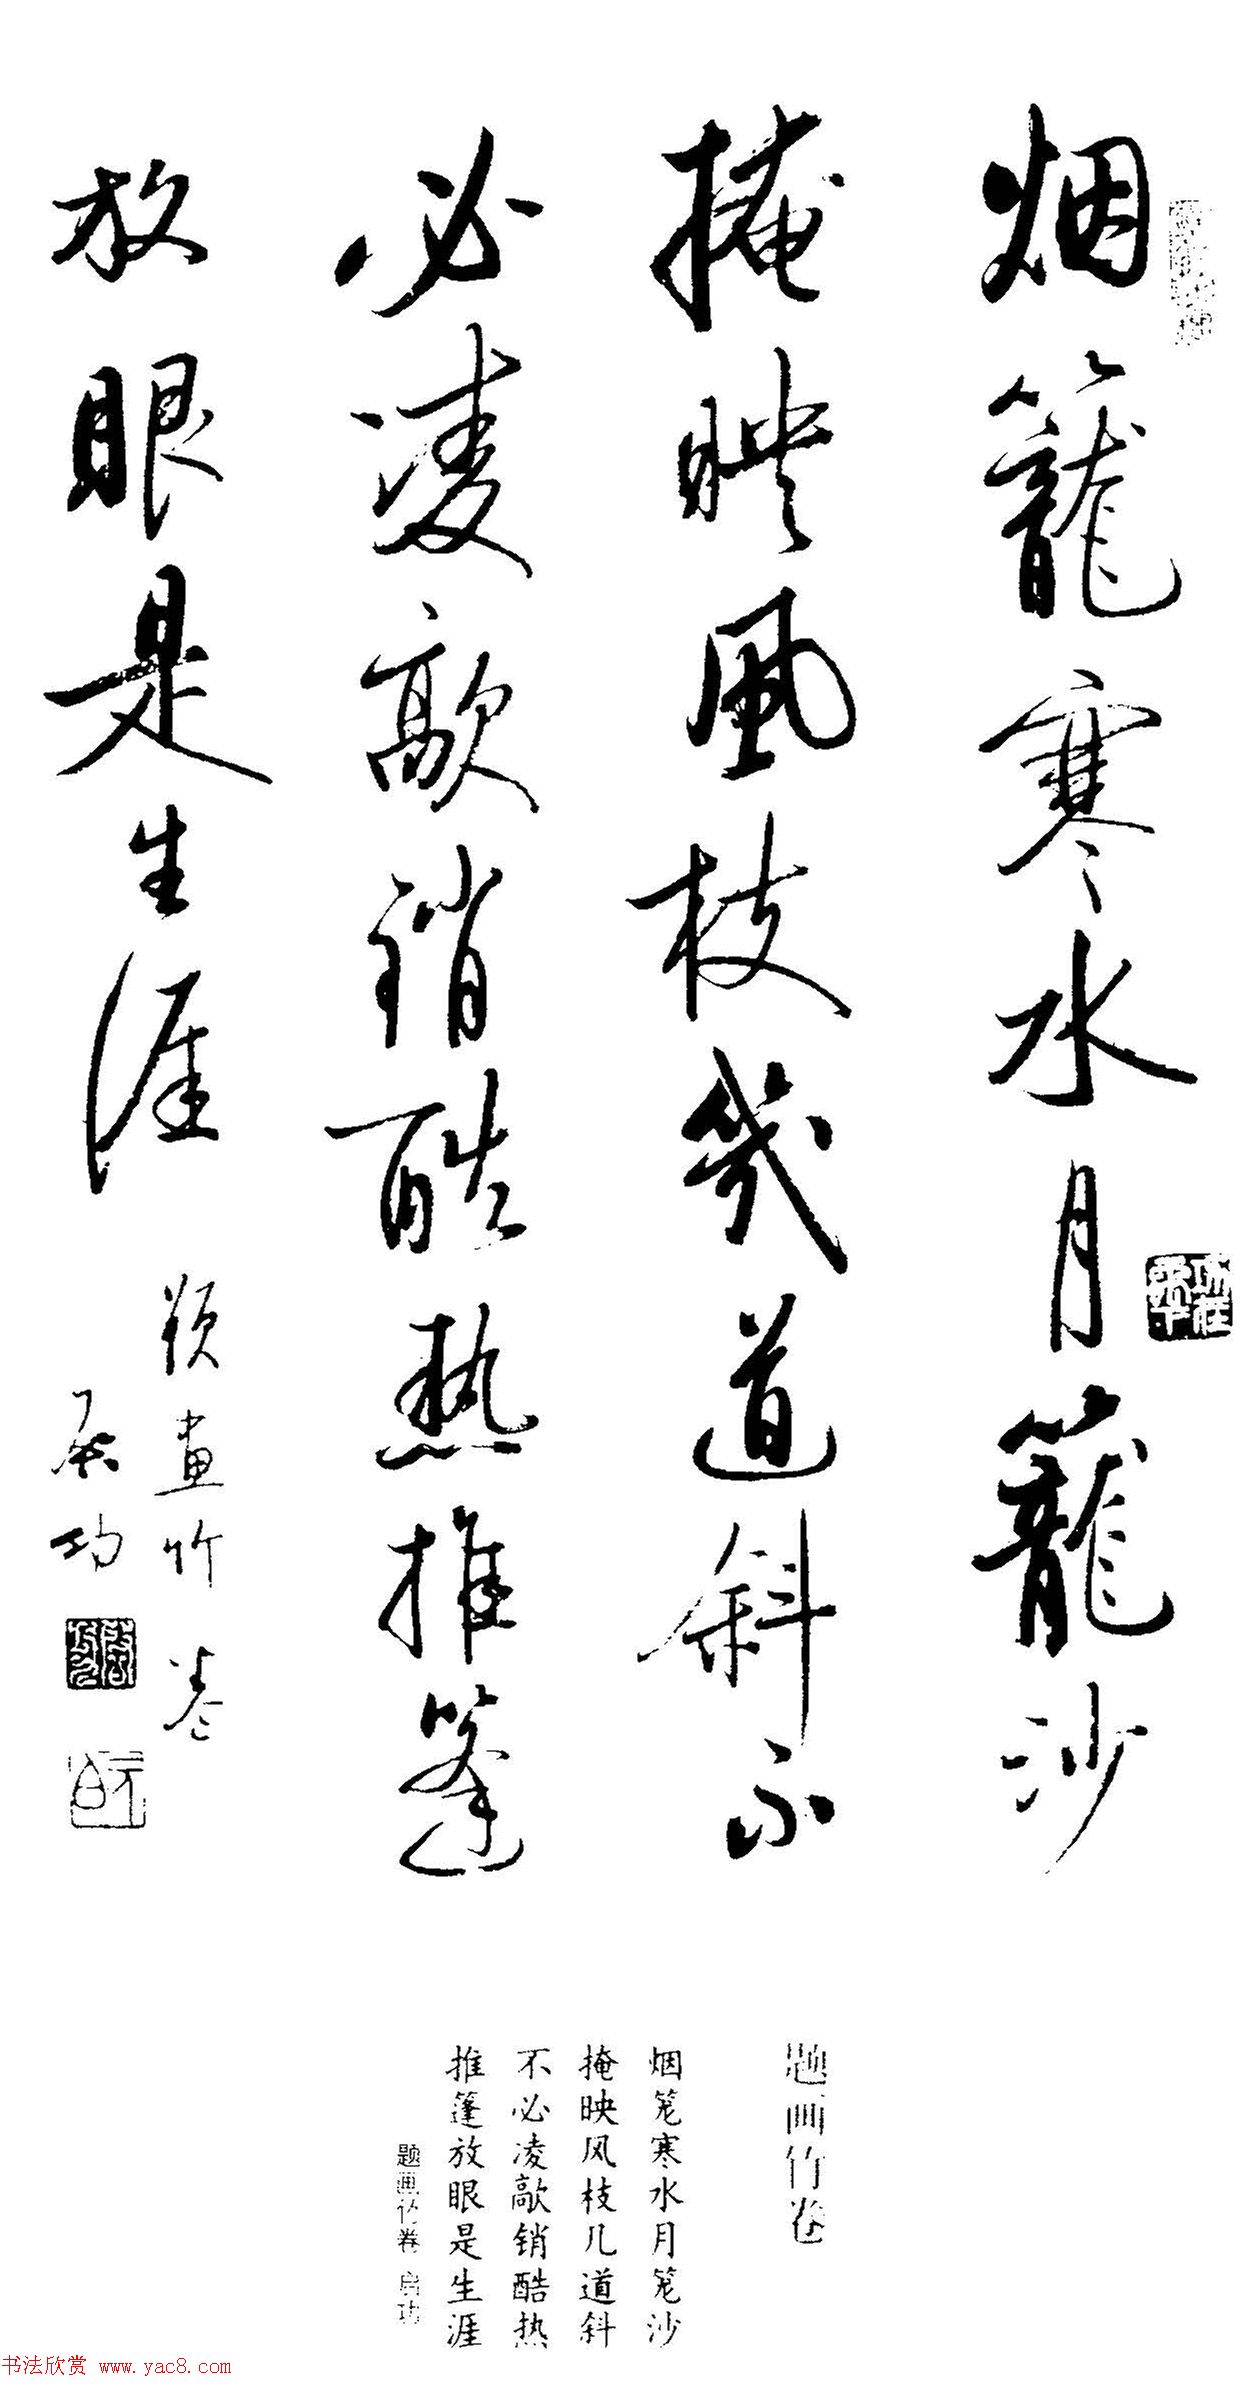 烟籠寒水月籠沙
掩映風枝幾道斜不
必凌歊銷酷热推篷
放眼是生涯
題畫竹卷
启功
题画竹卷
烟笼寒水月笼沙
掩映风枝几道斜
不必凌歊销酷热
推篷放眼是生涯
题画竹卷 启功
书法欣赏 www.yac8.com